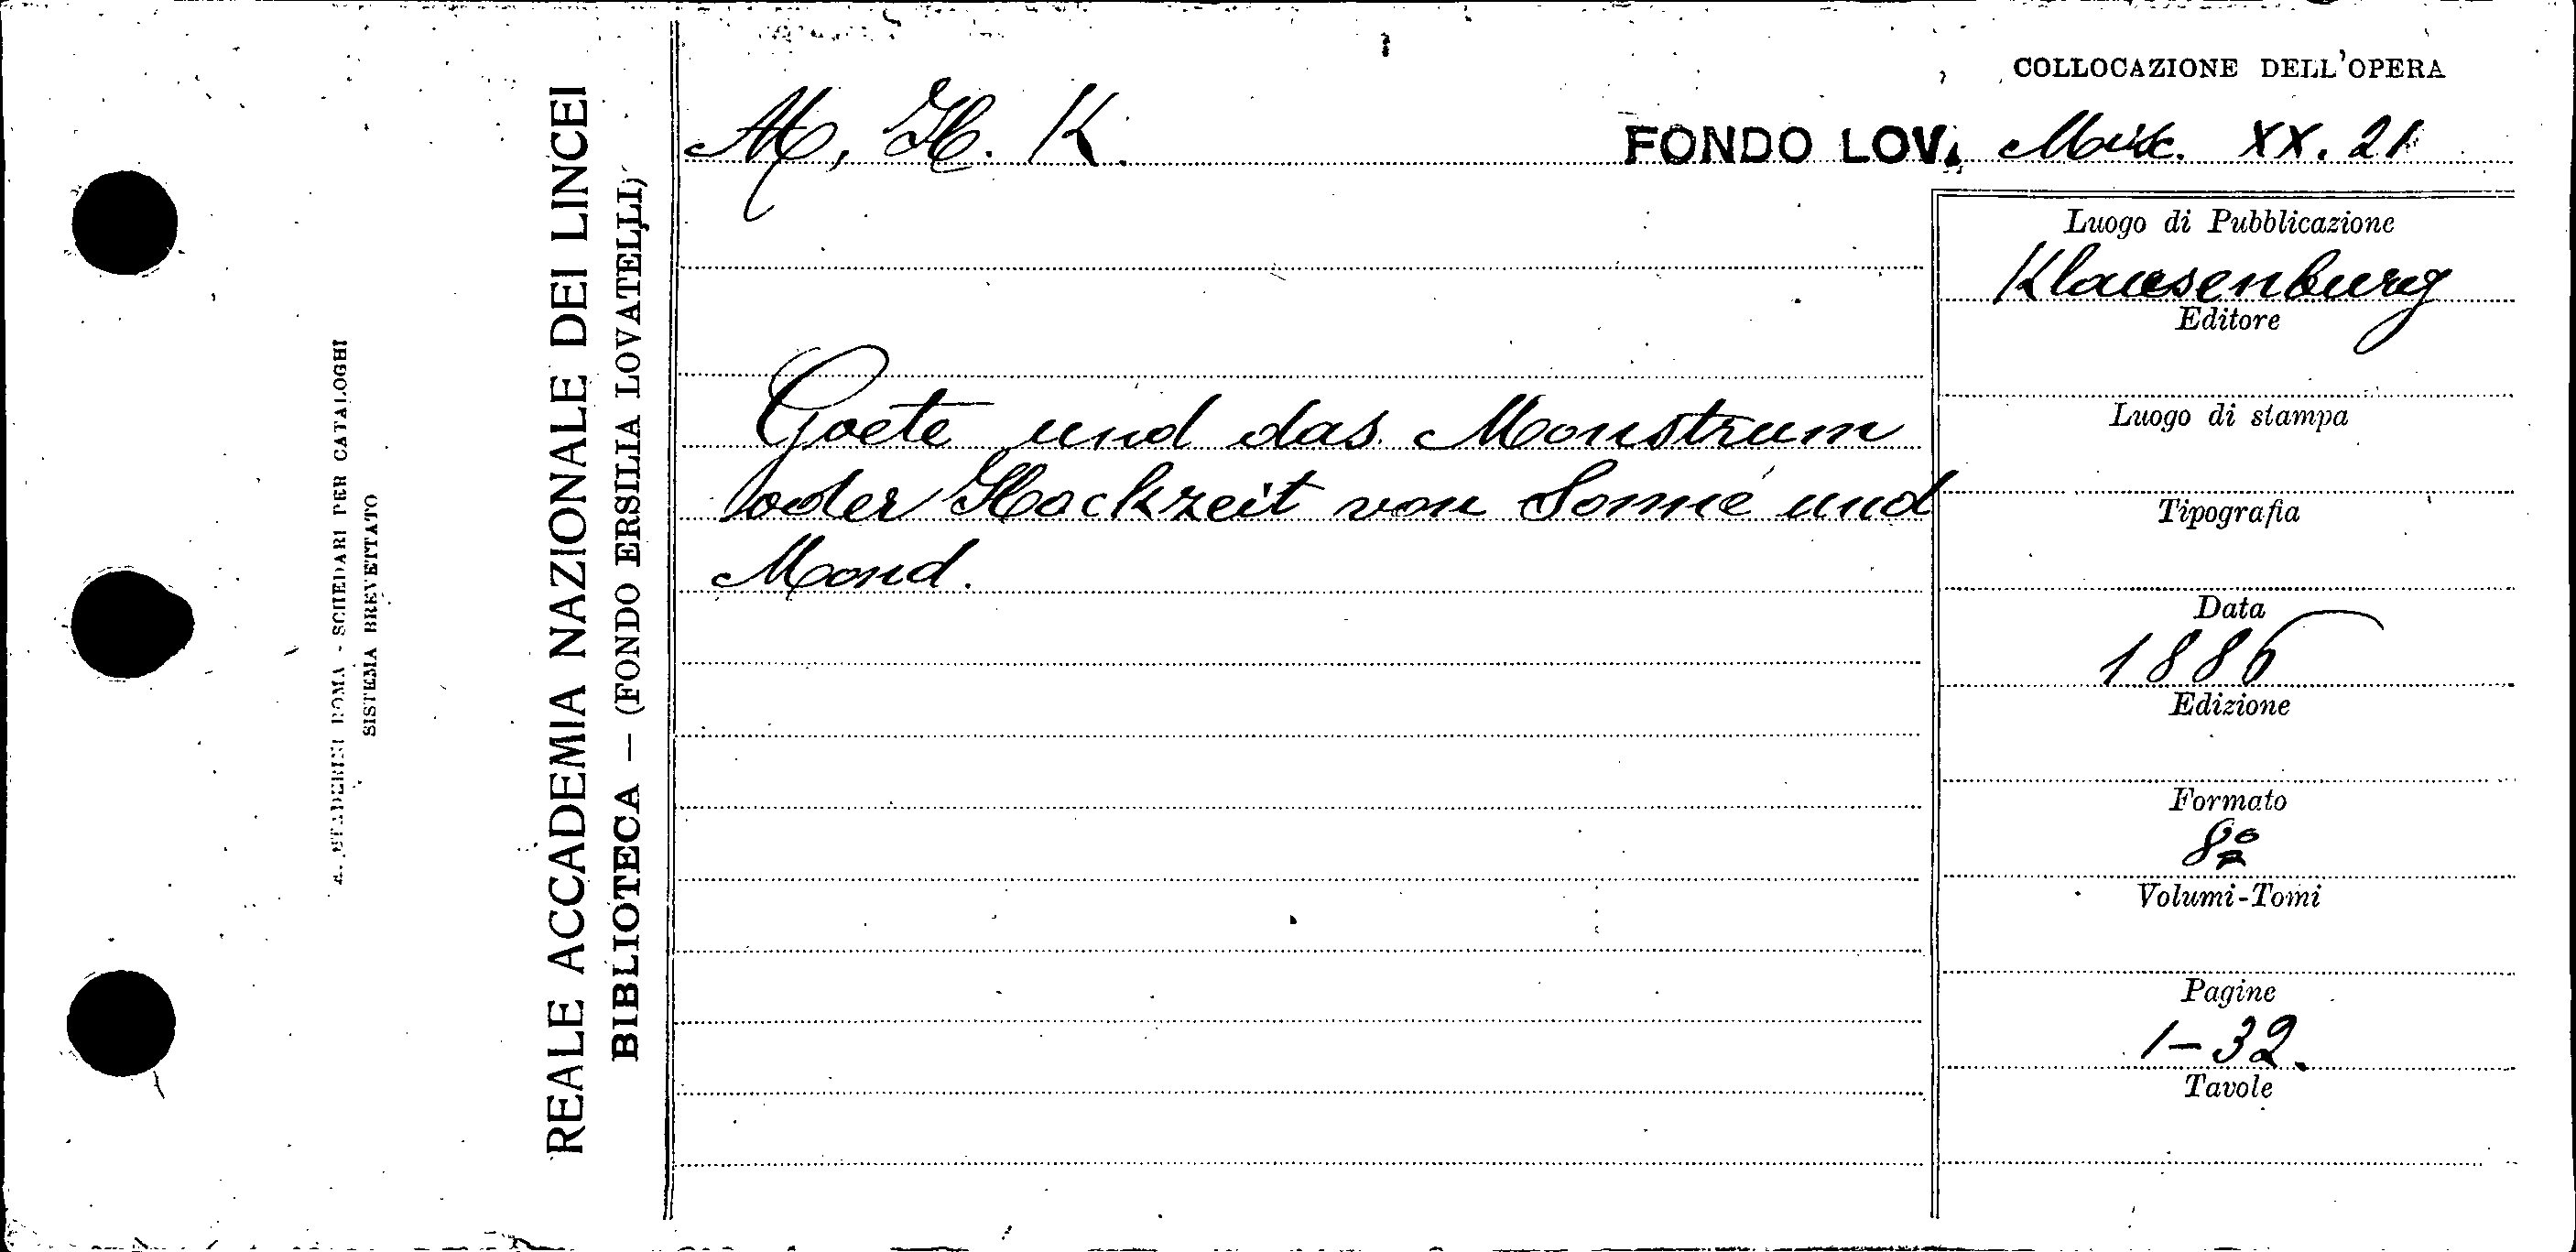 COLLOCAZIONE DELL'OPERA
M, H. K.
FONDO LOV. Misc. XX. 21
Luogo di Pubblicazione
Klausenburg
Editore
Luogo di stampa
Tipografia
Data
1886
Edizione
Formato
8º
Volumi-Tomi
Pagine
1-32.
Tavole
Goete und das Monstrum
oder Hockzeit von Sonne und
Mond.
REALE ACCADEMIA NAZIONALE DEI LINCEI
BIBLIOTECA — (FONDO ERSILIA LOVATELLI)
ROMA - SCHEDARI PER CATALOGHI
SISTEMA BREVETTATO